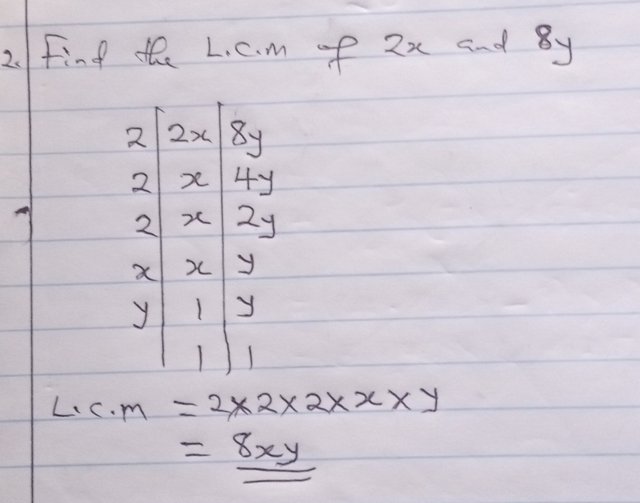 2. Find the L.C.M of 2x and 8y
2 | 2x | 8y
2 | x | 4y
2 | x | 2y
x | x | y
y | 1 | y
| 1 | 1
L.C.M = 2×2×2×x×y
= 8xy